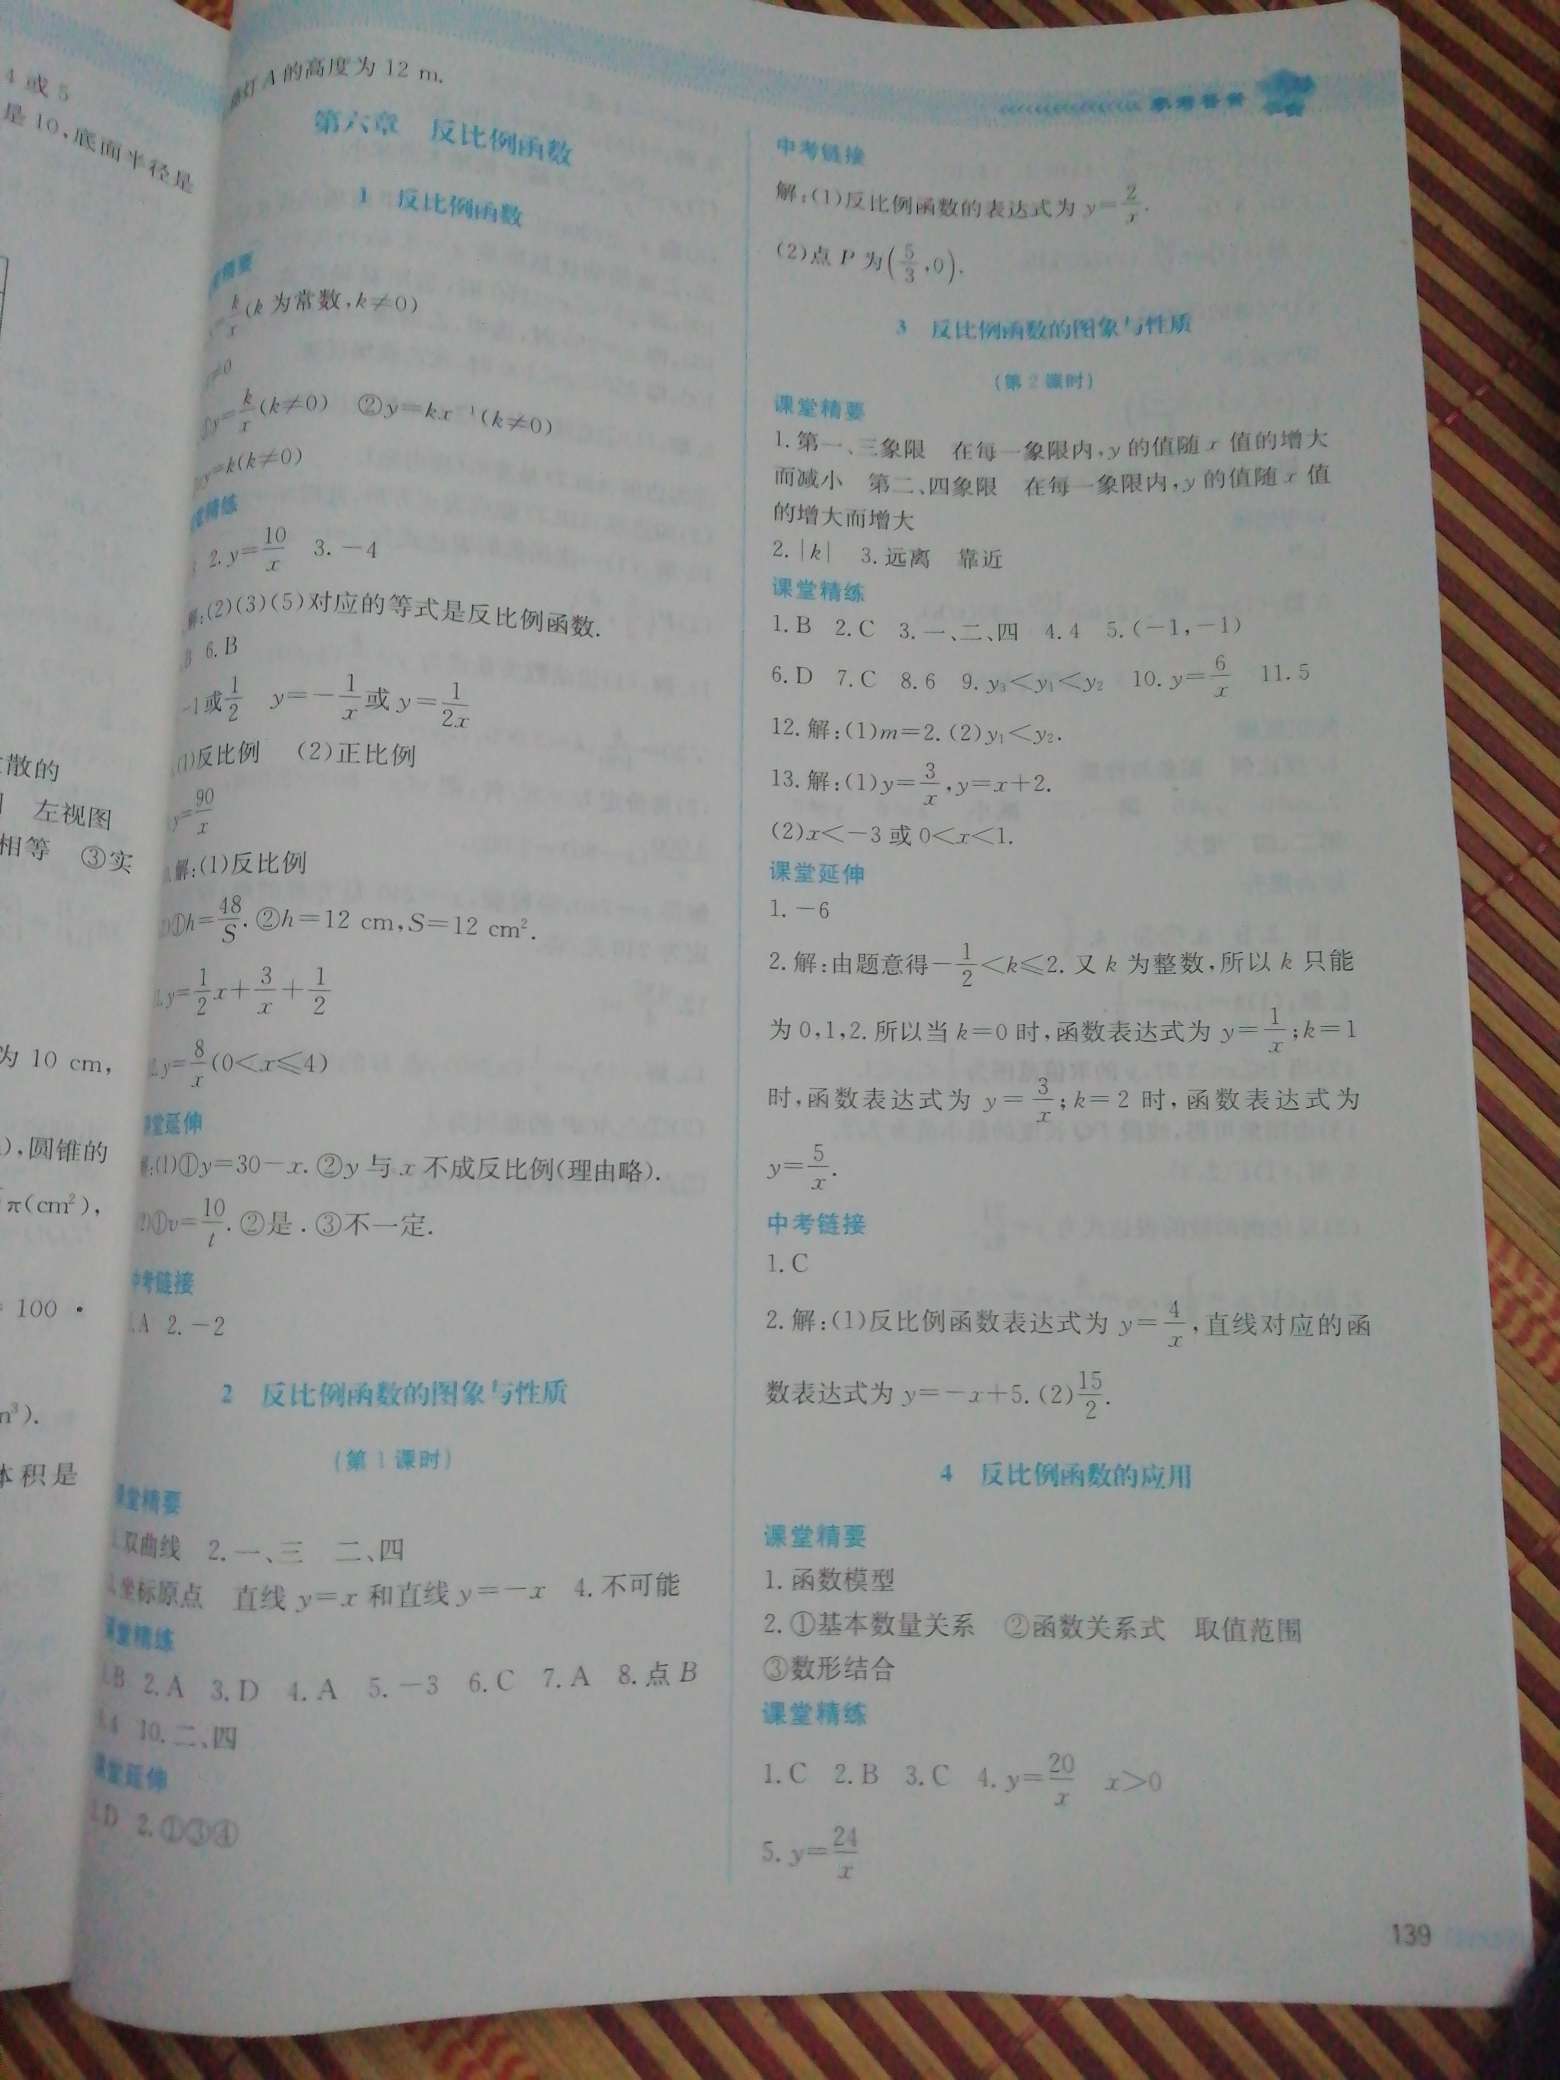 4或5
是10,底面半径是
散的
左视图
相等 ③实
为 10 cm,
),圆锥的
π(cm²),
100 ·
体积是
A的高度为 12 m.
第六章 反比例函数
1 反比例函数
精要
k/x(k为常数,k≠0)
≠0
y=k/x(k≠0) ②y=kx⁻¹(k≠0)
y=k(k≠0)
精练
2.y=10/x 3.-4
解:(2)(3)(5)对应的等式是反比例函数.
B 6.B
-1或1/2 y=-1/x或y=1/2x
(1)反比例 (2)正比例
y=90/x
解:(1)反比例
①h=48/S.②h=12 cm,S=12 cm².
y=1/2x+3/x+1/2
y=8/x(0<x≤4)
课堂延伸
解:(1)①y=30-x.②y与x不成反比例(理由略).
(2)①v=10/t.②是.③不一定.
中考链接
1.A 2.-2
2 反比例函数的图象与性质
(第1课时)
课堂精要
1.双曲线 2.一、三 二、四
3.坐标原点 直线y=x和直线y=-x 4.不可能
课堂精练
1.B 2.A 3.D 4.A 5.-3 6.C 7.A 8.点B
4 10.二、四
课堂延伸
1.D 2.①③④
参考答案
中考链接
解:(1)反比例函数的表达式为y=2/x.
(2)点P为(5/3,0).
3 反比例函数的图象与性质
(第2课时)
课堂精要
1.第一、三象限 在每一象限内,y的值随x值的增大
而减小 第二、四象限 在每一象限内,y的值随x值
的增大而增大
2.|k| 3.远离 靠近
课堂精练
1.B 2.C 3.一、二、四 4.4 5.(-1,-1)
6.D 7.C 8.6 9.y₃<y₁<y₂ 10.y=6/x 11.5
12.解:(1)m=2.(2)y₁<y₂.
13.解:(1)y=3/x,y=x+2.
(2)x<-3或0<x<1.
课堂延伸
1.-6
2.解:由题意得-1/2<k≤2.又k为整数,所以k只能
为0,1,2.所以当k=0时,函数表达式为y=1/x;k=1
时,函数表达式为y=3/x;k=2时,函数表达式为
y=5/x.
中考链接
1.C
2.解:(1)反比例函数表达式为y=4/x,直线对应的函
数表达式为y=-x+5.(2)15/2.
4 反比例函数的应用
课堂精要
1.函数模型
2.①基本数量关系 ②函数关系式 取值范围
③数形结合
课堂精练
1.C 2.B 3.C 4.y=20/x x>0
5.y=24/x
139